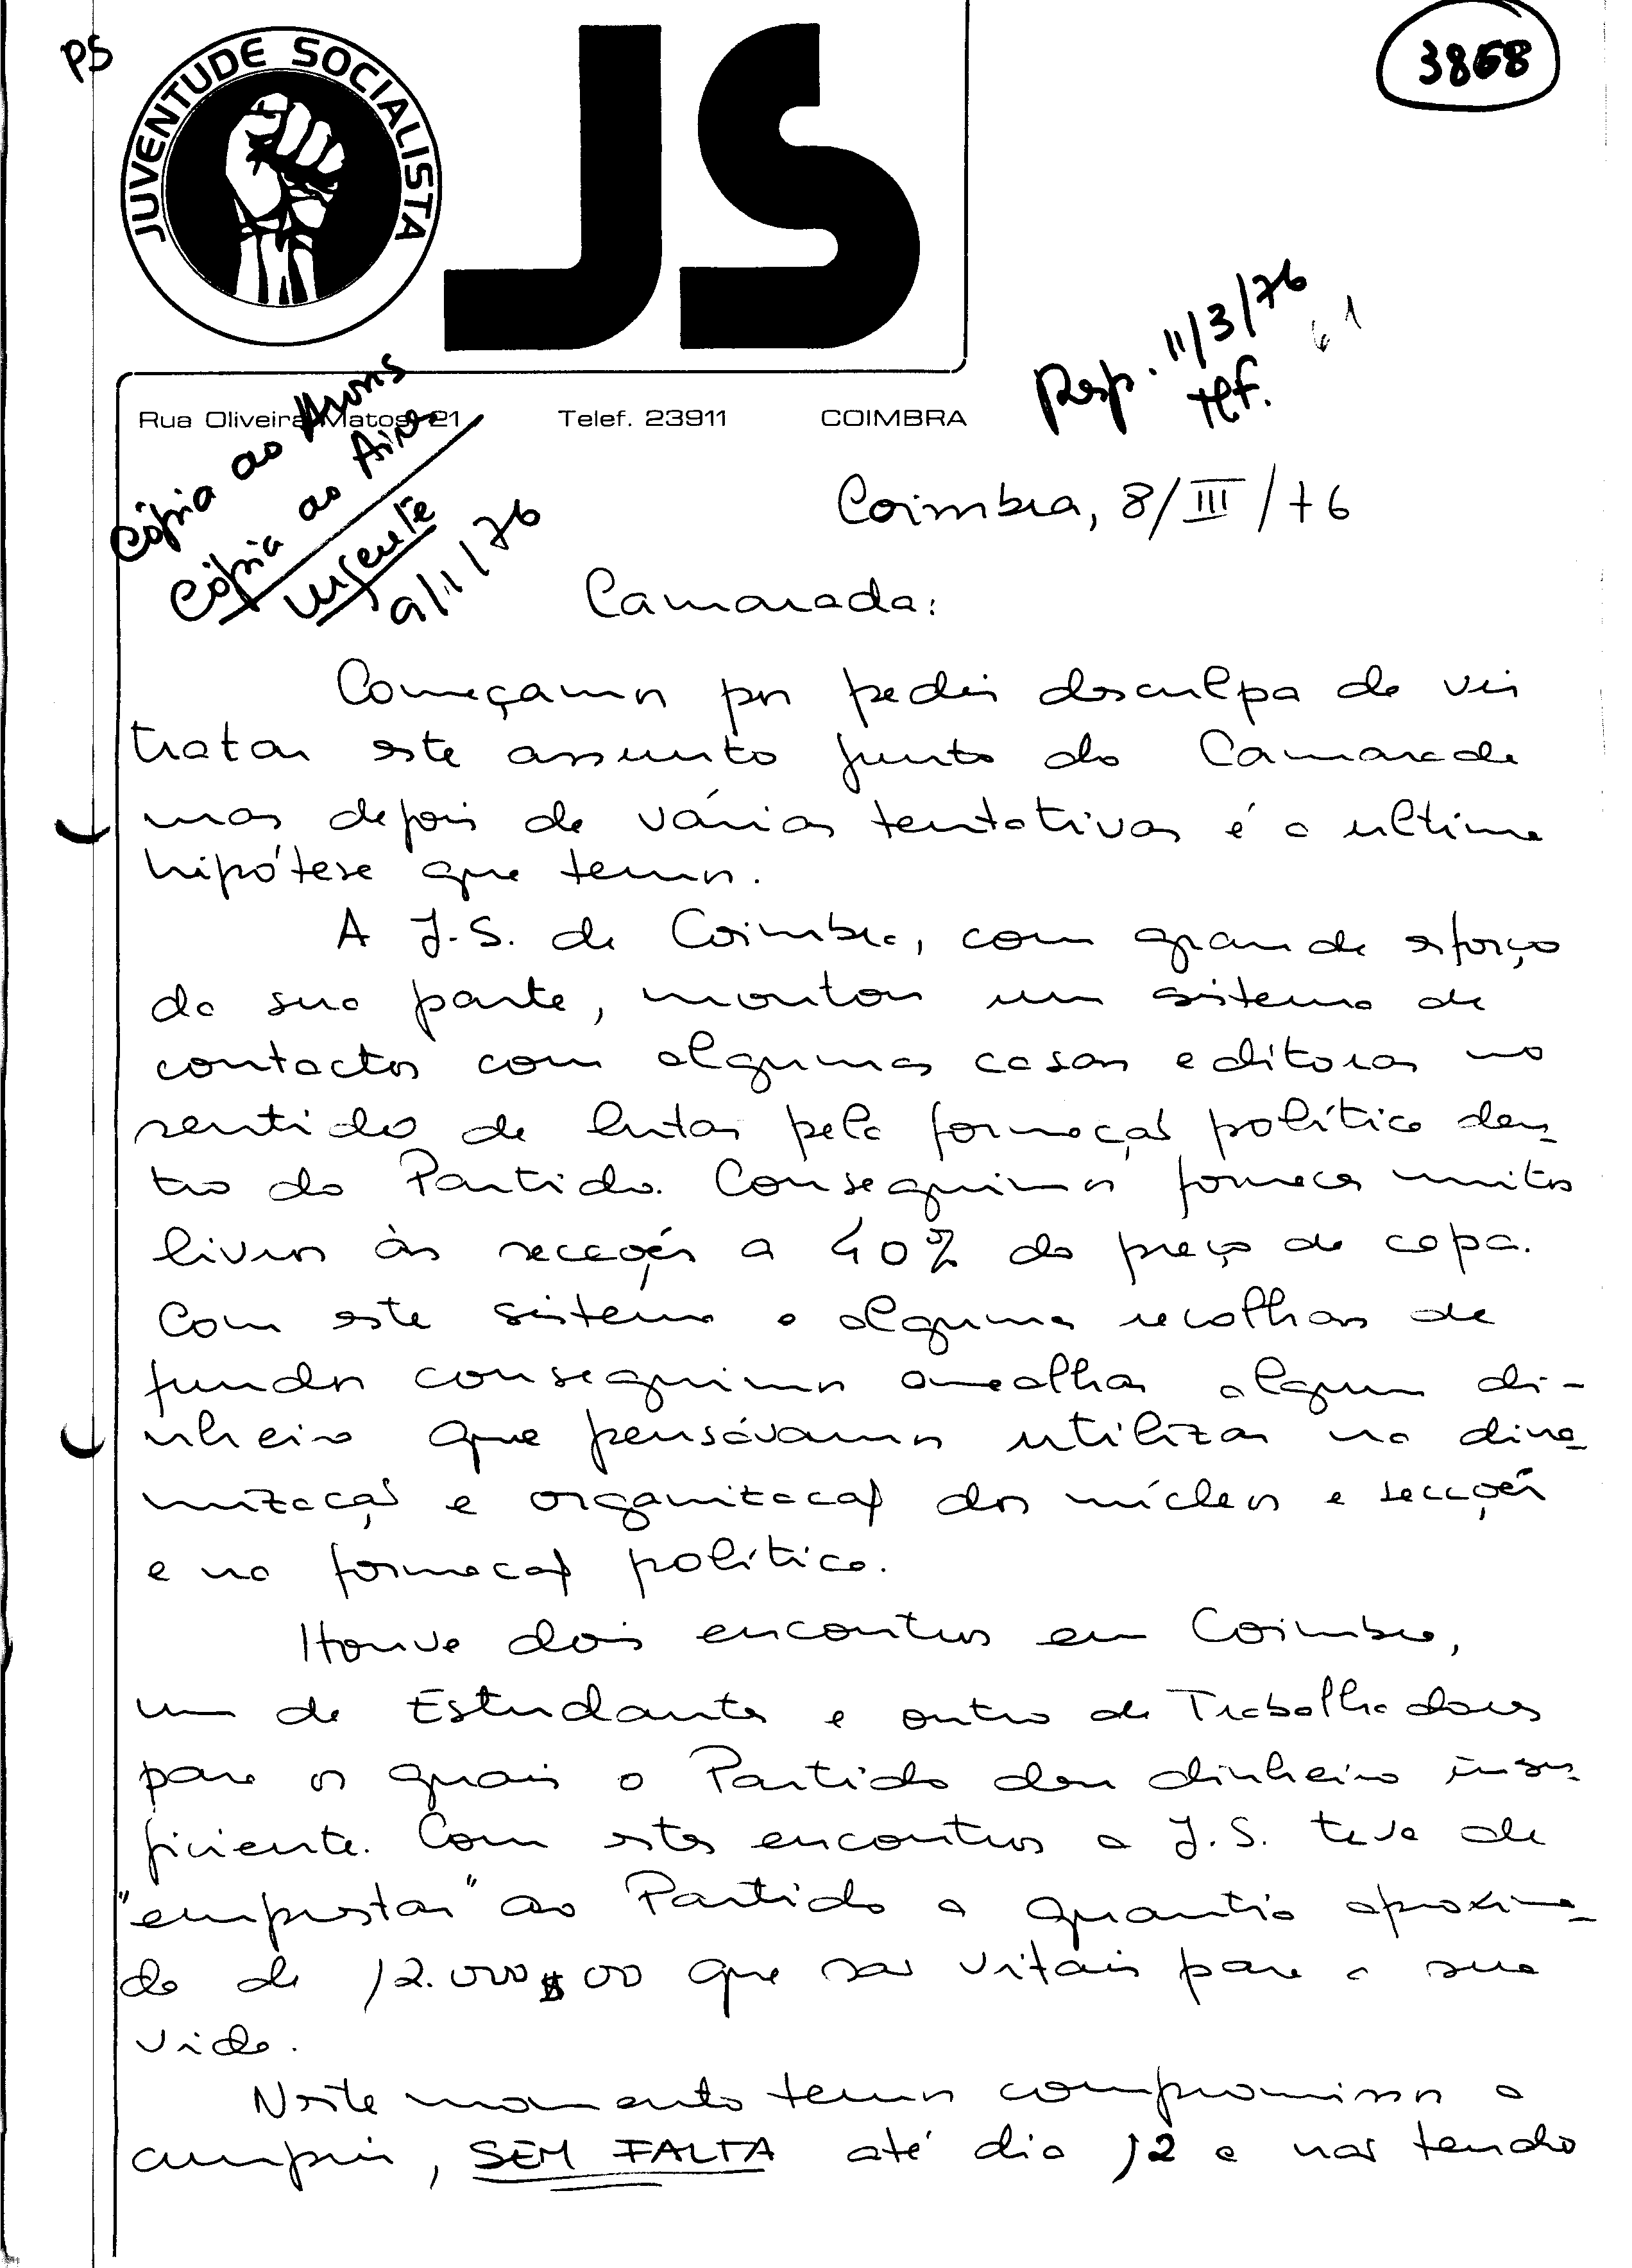 PS
JUVENTUDE SOCIALISTA
JS
3868
Resp. 11/3/76
telf.
Rua Oliveira Matos, 21 Telef. 23911 COIMBRA
Cópia ao
Cópia ao
Urgente
9/11/76
Coimbra, 8/III/76
Camarada:
Começamos por pedir desculpa de vir
tratar este assunto junto do Camarada
mas depois de várias tentativas é a ultima
hipótese que temos.
A J.S. de Coimbra, com grande esforço
da sua parte, montou um sistema de
contactos com algumas casas editoras no
sentido de lutar pela formação política den-
tro do Partido. Conseguimos fornecer muitos
livros às secções a 40% do preço de capa.
Com este sistema e algumas recolhas de
fundos conseguimos amealhar algum di-
nheiro que pensávamos utilizar na dina-
mização e organização dos núcleos e secções
e na formação política.
Houve dois encontros em Coimbra,
um de Estudantes e outro de Trabalhadores
para os quais o Partido deu dinheiro insu-
ficiente. Com estes encontros a J.S. teve de
"emprestar" ao Partido a quantia aproxima-
da de 12.000$00 que são vitais para a sua
vida.
Neste momento temos compromissos a
cumprir, SEM FALTA até dia 12 e não tendo